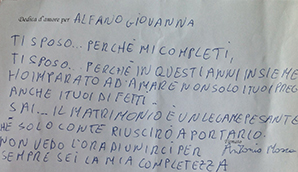 Dedica d'amore per ALFANO GIOVANNA
TI SPOSO... PERCHÈ MI COMPLETI,
TI SPOSO... PERCHÈ IN QUESTI ANNI INSIEME
HO IMPARATO AD AMARE NON SOLO I TUOI PREG
ANCHE I TUOI DIFETTI.
SAI... IL MATRIMONIO È UN LEGAME PESANTE
HÈ SOLO CON TE RIUSCIRÒ A PORTARLO.
NON VEDO L'ORA DI UNIRCI PER
SEMPRE SEI LA MIA COMPLETEZZA
Antonio